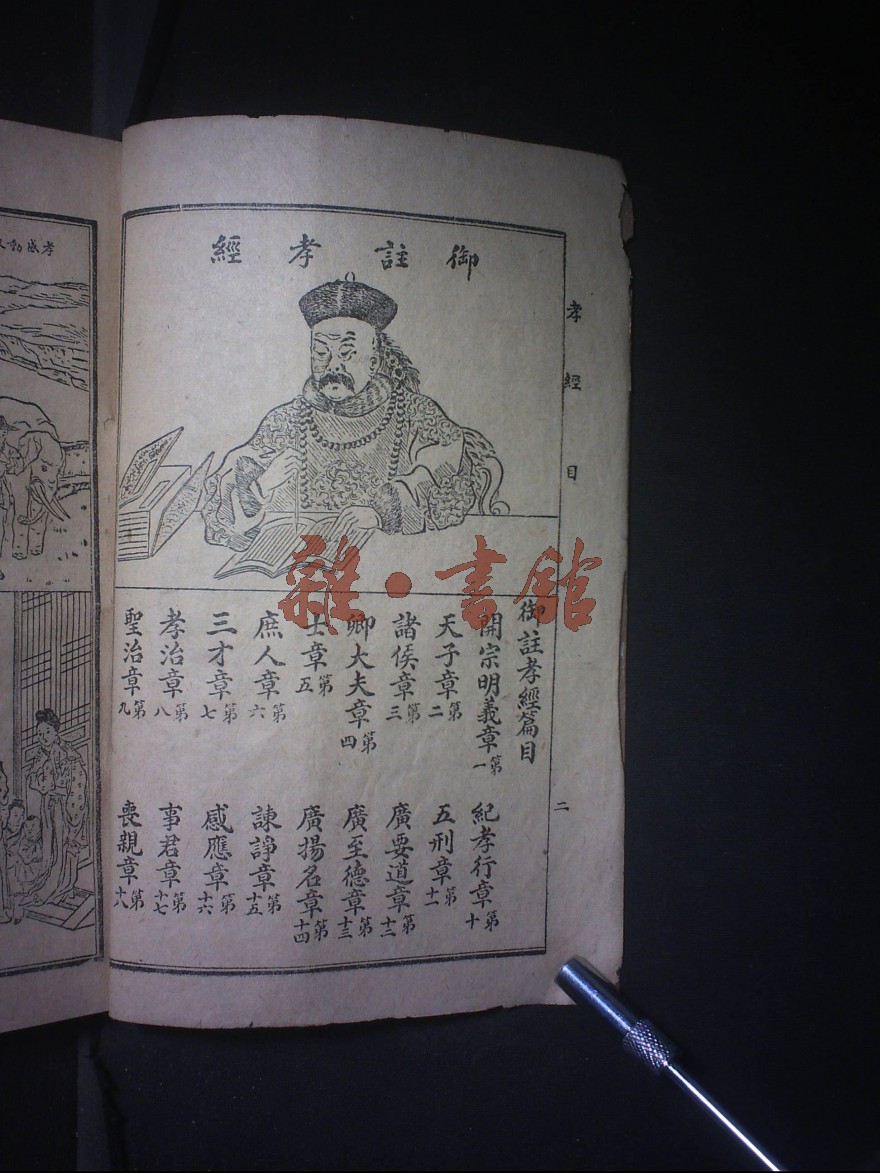 御註孝經
孝經 目 二
御註孝經篇目
開宗明義章第一
天子章第二
諸侯章第三
卿大夫章第四
士章第五
庶人章第六
三才章第七
孝治章第八
聖治章第九
紀孝行章第十
五刑章第十一
廣要道章第十二
廣至德章第十三
廣揚名章第十四
諫諍章第十五
感應章第十六
事君章第十七
喪親章第十八
孝感動
雜·書館